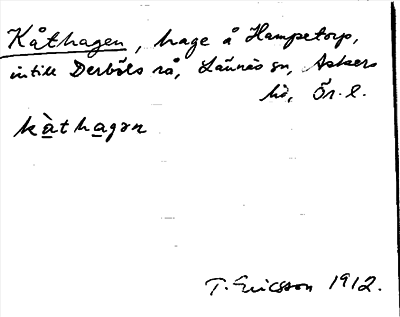 Kåthagen, hage å Hampetorp,
intill Derböls rå, Lännäs sn, Askers
hd, Ör. l.
kàthagǝn
T. Ericsson 1912.